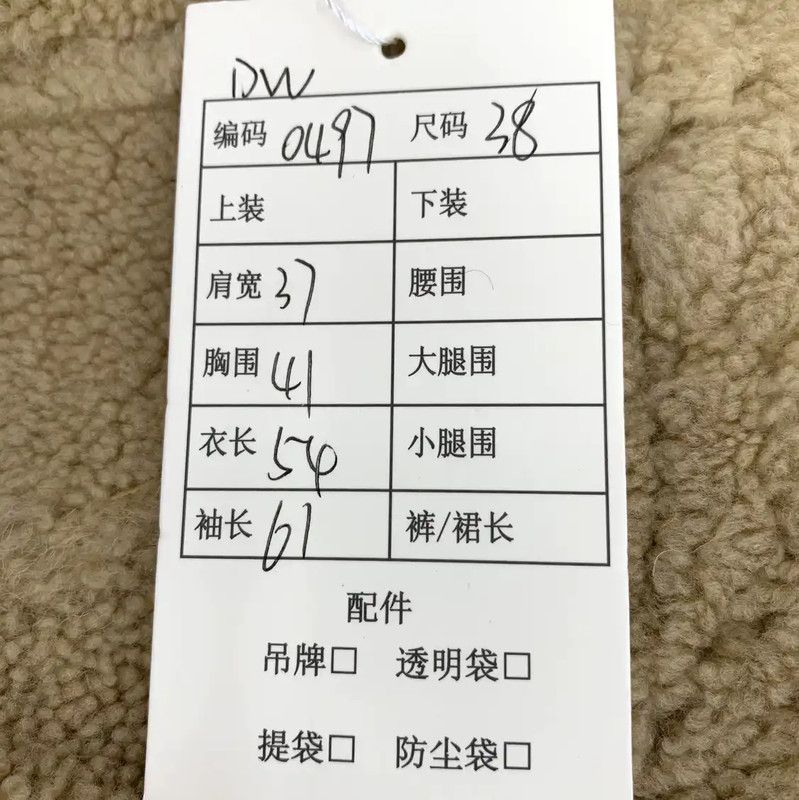 DW
编码 0497 尺码 38
上装 下装
肩宽 37 腰围
胸围 41 大腿围
衣长 54 小腿围
袖长 61 裤/裙长
配件
吊牌□ 透明袋□
提袋□ 防尘袋□